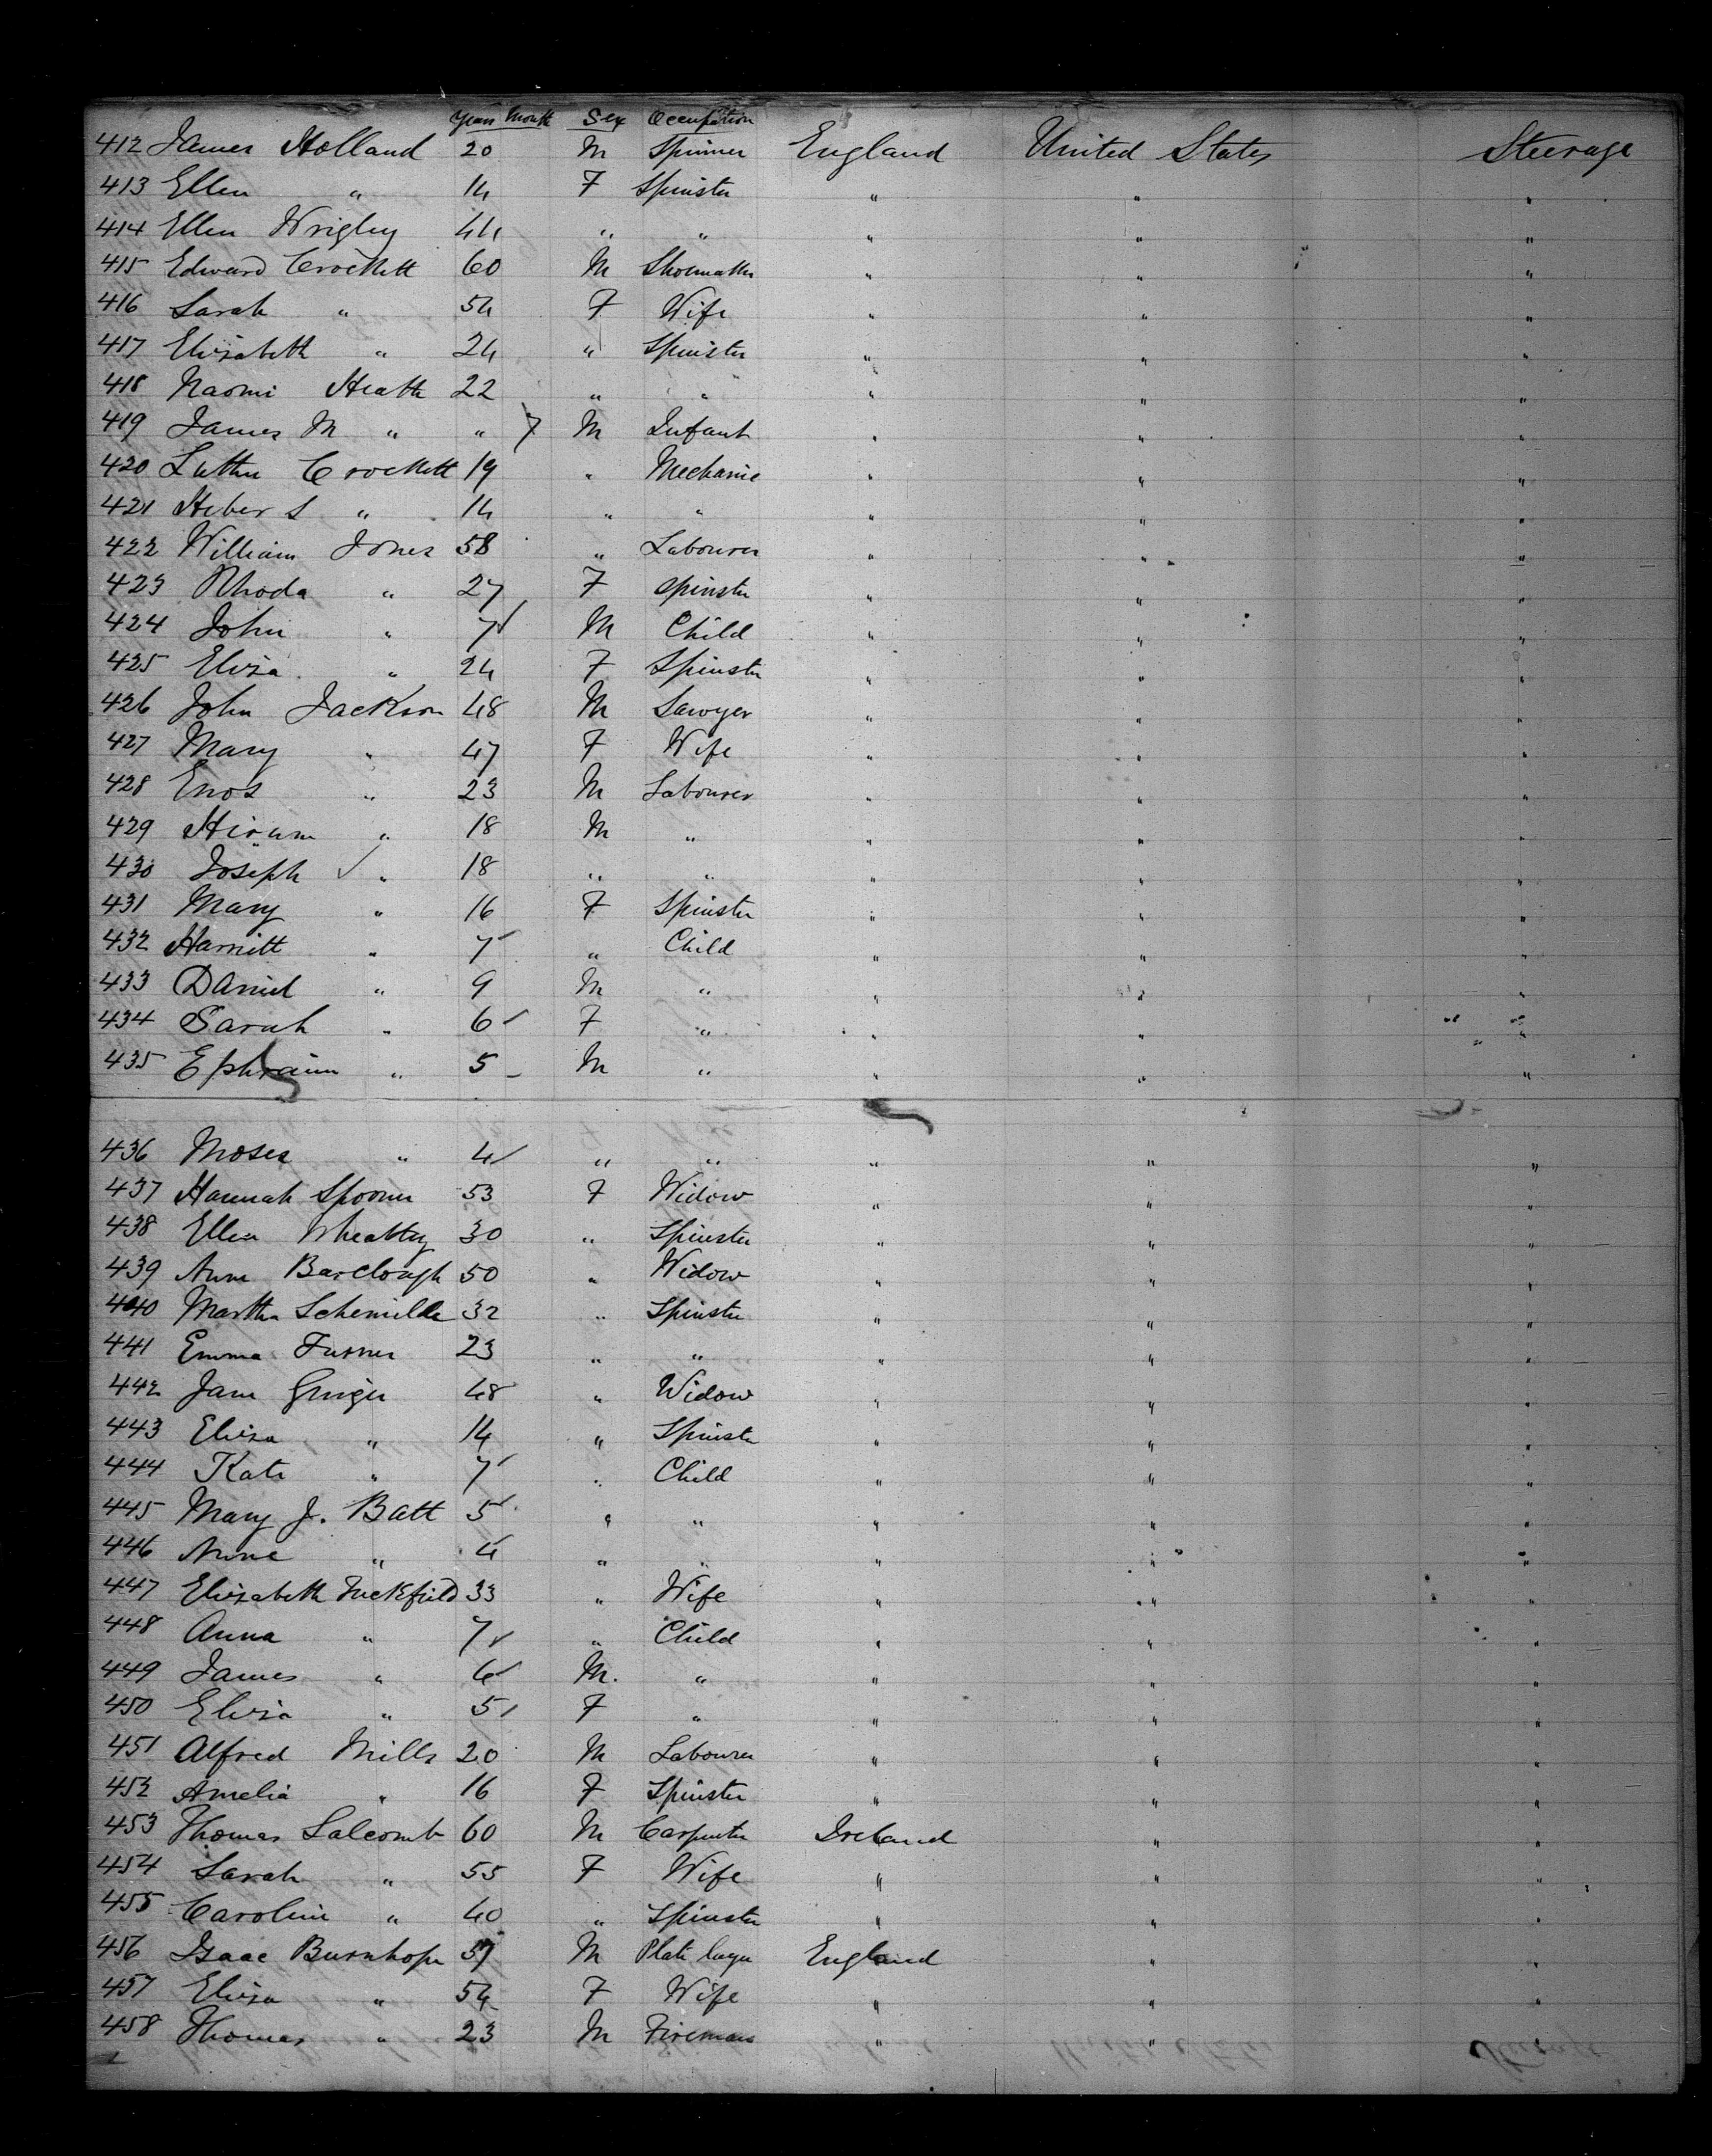 Years Month Sex Occupation
412 James Holland 20 M Spinner England United States Steerage
413 Ellen " 14 F Spinster " " "
414 Ellen Wrigley 44 " " " " "
415 Edward Crockett 60 M Shoemaker " " "
416 Sarah " 54 F Wife " " "
417 Elizabeth " 24 " Spinster " " "
418 Naomi Heath 22 " " " " "
419 James M " " 7 M Infant " " "
420 Luther Crockett 19 " Mechanic " " "
421 Heber S " 14 " " " " "
422 William Jones 58 " Labourer " " "
423 Rhoda " 27 F Spinster " " "
424 John " 7 M Child " " "
425 Eliza " 24 F Spinster " " "
426 John Jackson 48 M Sawyer " " "
427 Mary " 47 F Wife " " "
428 Enos " 23 M Labourer " " "
429 Hirum " 18 M " " " "
430 Joseph " 18 " " " " "
431 Mary " 16 F Spinster " " "
432 Harriett " 7 " Child " " "
433 Daniel " 9 M " " " "
434 Sarah " 6 F " " " "
435 Ephraim " 5 M " " " "
436 Moses " 4 " " " " "
437 Hannah Spooner 53 F Widow " " "
438 Ellen Wheatley 30 " Spinster " " "
439 Ann Barclough 50 " Widow " " "
440 Martha 32 " Spinster " " "
441 Emma Turner 23 " " " " "
442 Jane 48 " Widow " " "
443 Eliza " 14 " Spinster " " "
444 Kate " 7 " Child " " "
445 Mary J. Batt 5 " " " " "
446 Anne " 4 " " " " "
447 Elizabeth Tuckfield 33 " Wife " " "
448 Anna " 7 " Child " " "
449 James " 6 M. " " " "
450 Eliza " 5 F " " " "
451 Alfred Mills 20 M Labourer " " "
452 Amelia " 16 F Spinster " " "
453 Thomas Salcomb 60 M Carpenter Ireland " "
454 Sarah " 55 F Wife " " "
455 Caroline " 40 " Spinster " " "
456 Isaac Burnhope 57 M Plate layer England " "
457 Eliza " 54 F Wife " " "
458 Thomas " 23 M Fireman " "